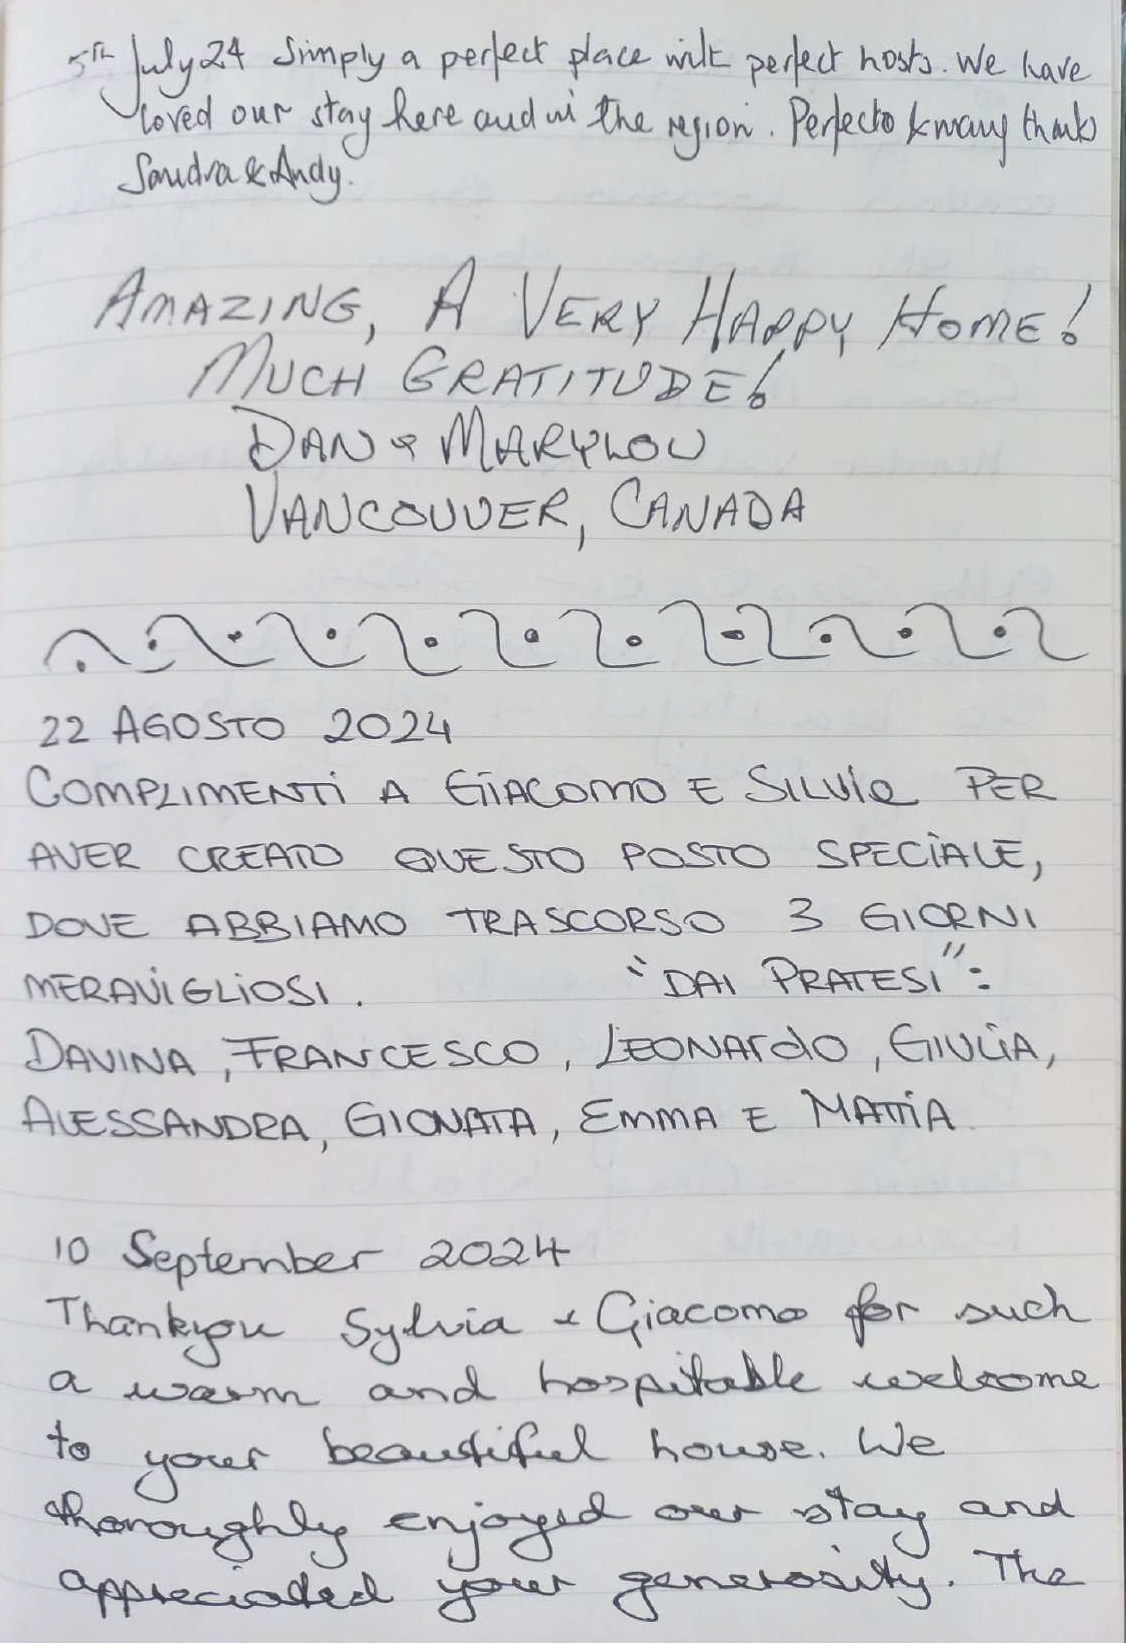 5th July 24 Simply a perfect place with perfect hosts. We have
loved our stay here and in the region. Perfecto & many thanks
Sandra & Andy.
AMAZING, A VERY HAPPY HOME!
MUCH GRATITUDE!
DAN & MARYLOU
VANCOUVER, CANADA
22 AGOSTO 2024
COMPLIMENTI A GIACOMO E SILVIA PER
AVER CREATO QUESTO POSTO SPECIALE,
DOVE ABBIAMO TRASCORSO 3 GIORNI
MERAVIGLIOSI. "DAI PRATESI":
DAVINA, FRANCESCO, LEONARDO, GIULIA,
ALESSANDRA, GIONATA, EMMA E MATTIA
10 September 2024
Thankyou Sylvia & Giacomo for such
a warm and hospitable welcome
to your beautiful house. We
thoroughly enjoyed our stay and
appreciated your generosity. The